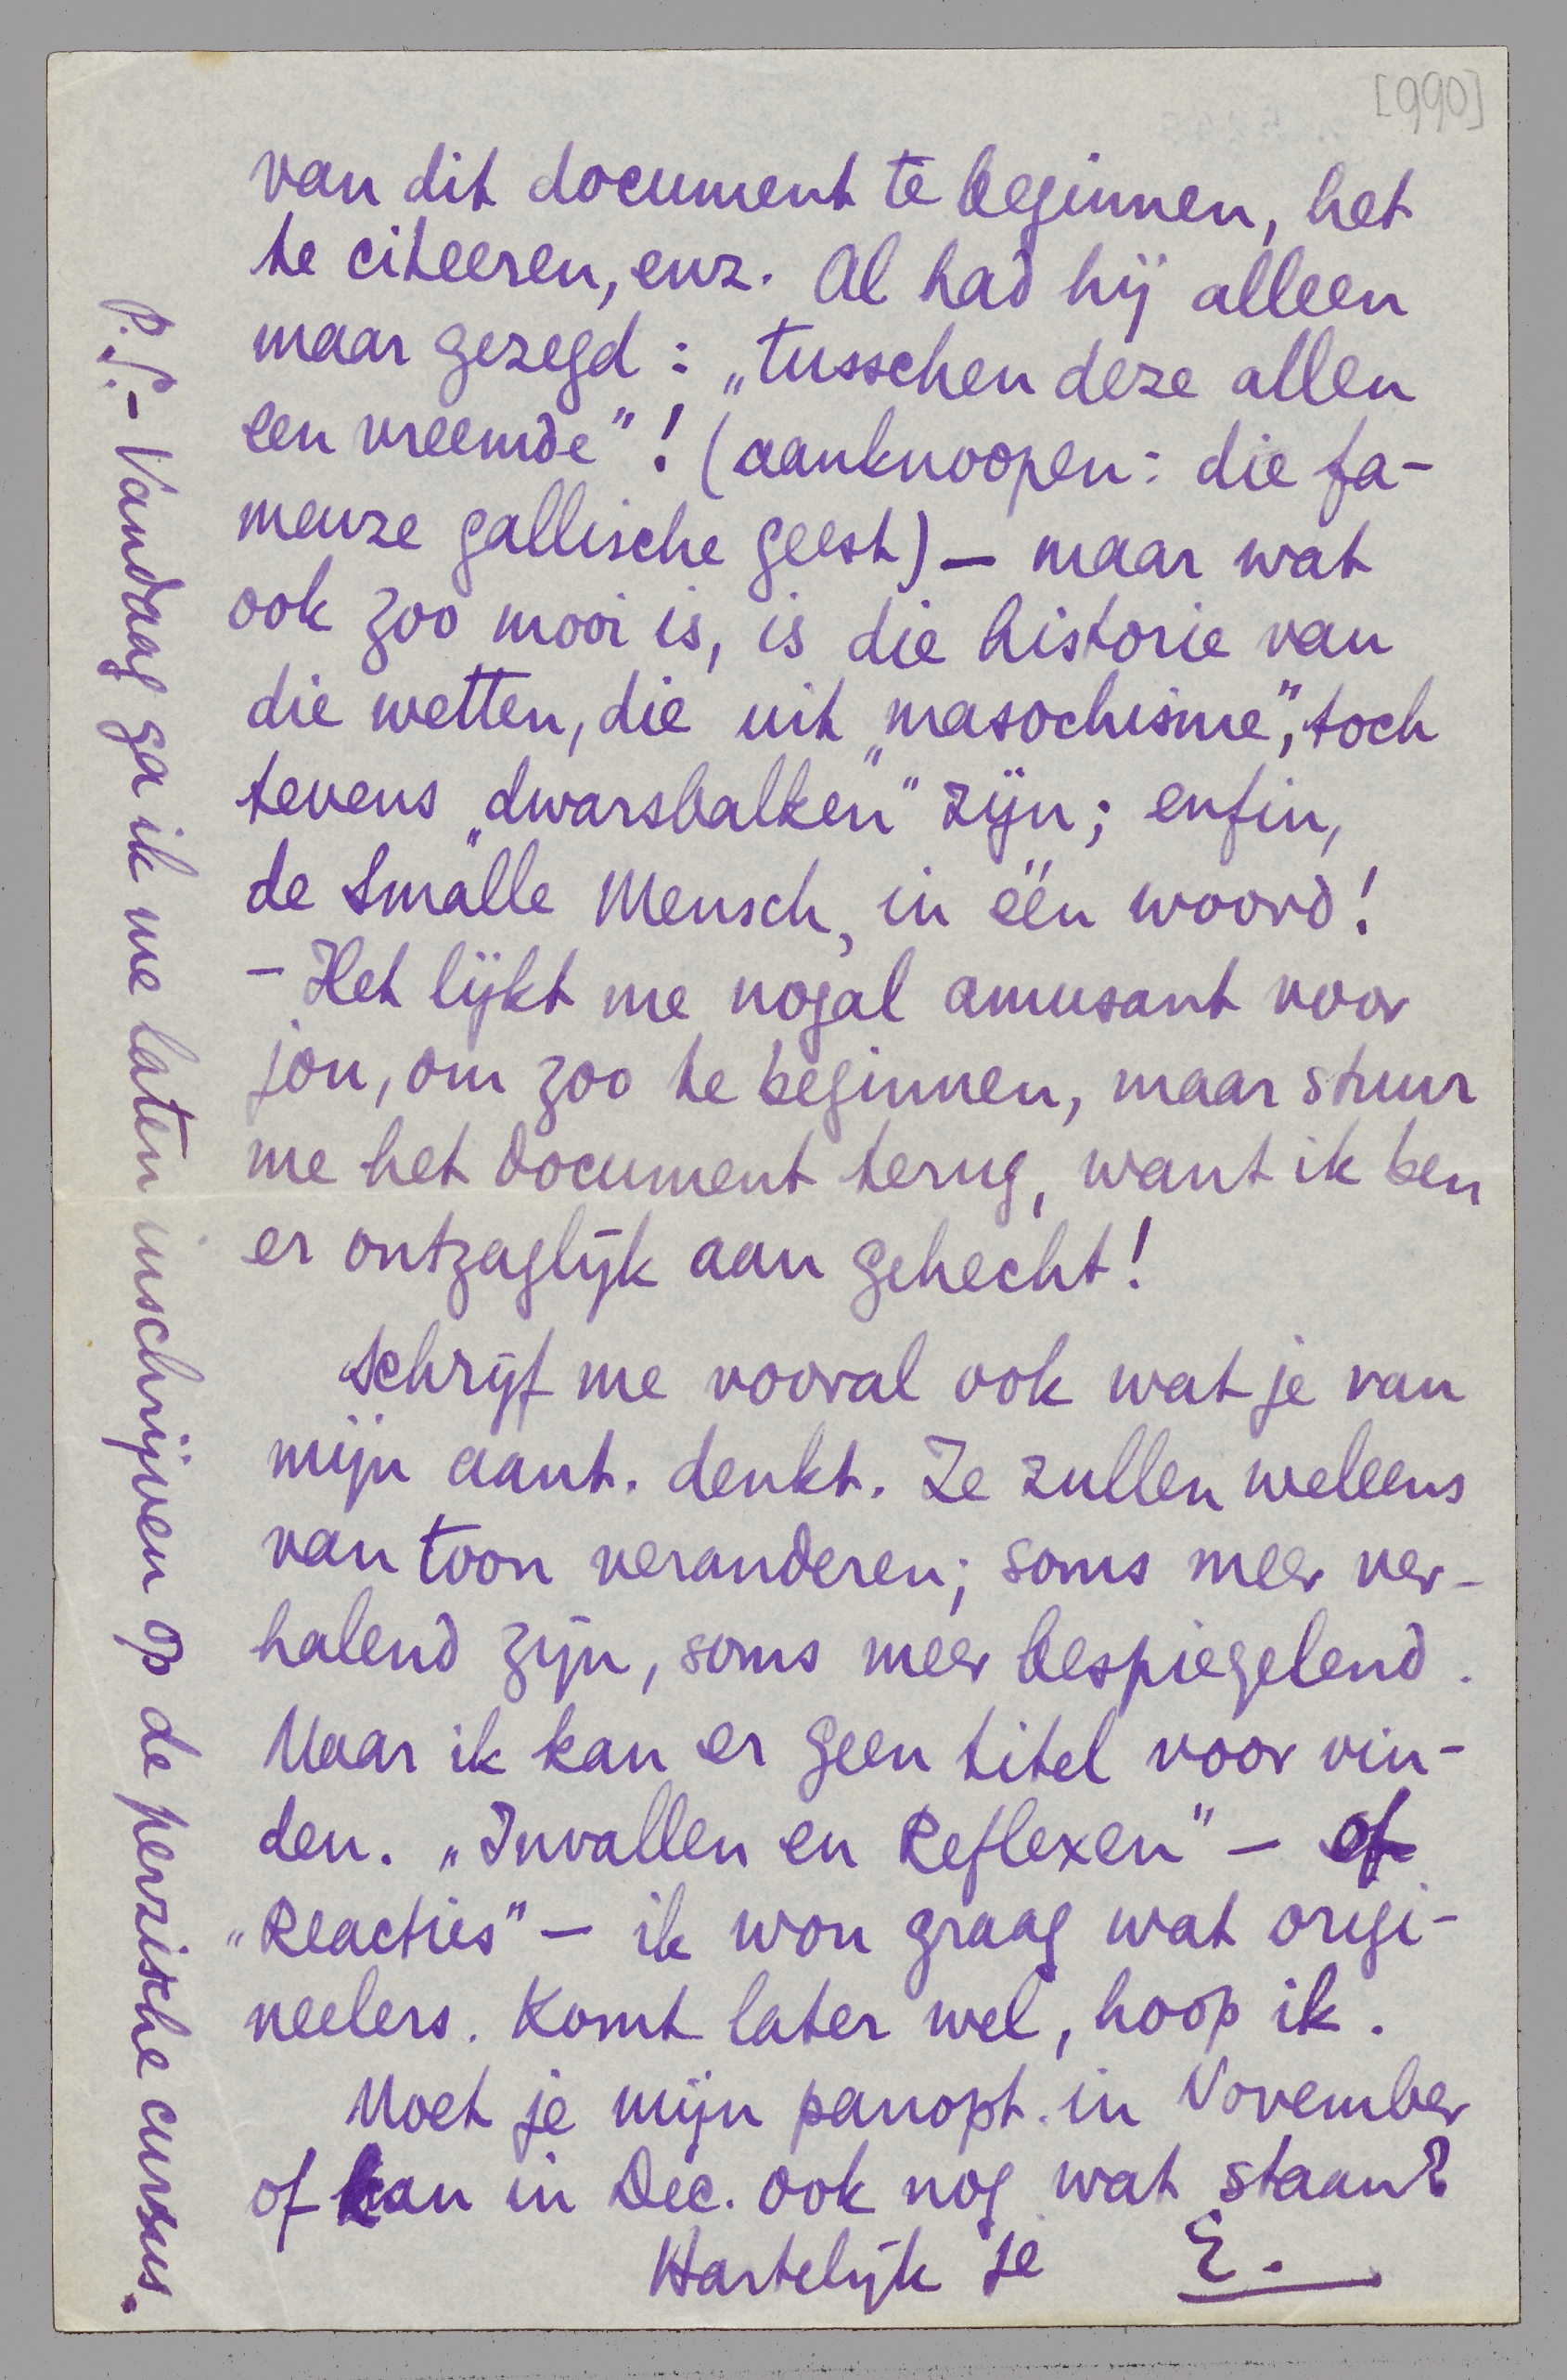 [990]
van dit document te beginnen, het
te citeeren, enz. Al had hij alleen
maar gezegd: „tusschen deze allen
een vreemde”! (aanknoopen: die fa-
meuze gallische geest) — maar wat
ook zoo mooi is, is die historie van
die wetten, die uit „masochisme”, toch
tevens „dwarsbalken” zijn; enfin,
de Smalle Mensch, in één woord!
- Het lijkt me nogal amusant voor
jou, om zoo te beginnen, maar stuur
me het document terug, want ik ben
er ontzaglijk aan gehecht!
Schrijf me vooral ook wat je van
mijn aant. denkt. Ze zullen weleens
van toon veranderen; soms meer ver-
halend zijn, soms meer bespiegelend.
Maar ik kan er geen titel voor vin-
den. „Invallen en Reflexen” — of
„Reacties” — ik wou graag wat origi-
neelers. Komt later wel, hoop ik.
Moet je mijn panopt. in November
of kan in Dec. ook nog wat staan?
Hartelijk je E.
P.S. - Vandaag ga ik me laten inschrijven op de perzische cursus.